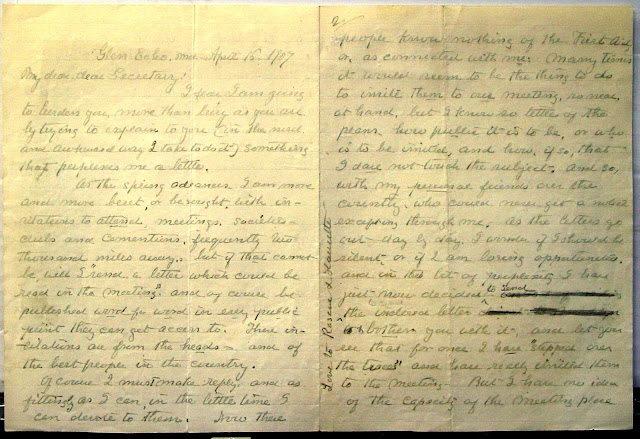 Glen Echo, Md. April 15, 1907
My dear dear Secretary!
I fear I am going
to burden you, more than busy as you are
by trying to explain to you (in the most
awkward way I take to do it) something
that perplexes me a little.
As the spring advances I am more
and more bent, or besought, with in-
vitations to attend, meetings, societies -
clubs and Conventions, frequently two
thousand miles away. but if that cannot
be will I "send a letter which could be
read in the meeting" and of course be
published word for word in every public
print they can get access to. These in-
vitations are from the heads - and of
the best people in the country.
Of course I must make reply, and as
fittingly as I can, in the little time I
can devote to them. Now these
2/
people know nothing of the First Aid
or, as connected with me: Many times
it would seem to be the thing to do
to invite them to our meeting, so near
at hand, but I know so little of the
plans, how public it is to be, or who
is to be invited, and how, if so, that
I dare not touch the subject. And so,
with my personal friends over the
country, who could never get a notice
excepting through me. As the letters go
out day by day, I wonder if I should be
silent, or if I am losing opportunities.
and in this bit of perplexity I have
just now decided to send
the inclosed letter
to bother you with it, and let you
see that for once I have "slipped over
the traces" and have really invited them
to the meeting. But I have no idea
of the capacity of the meeting place
Love to Roscoe &